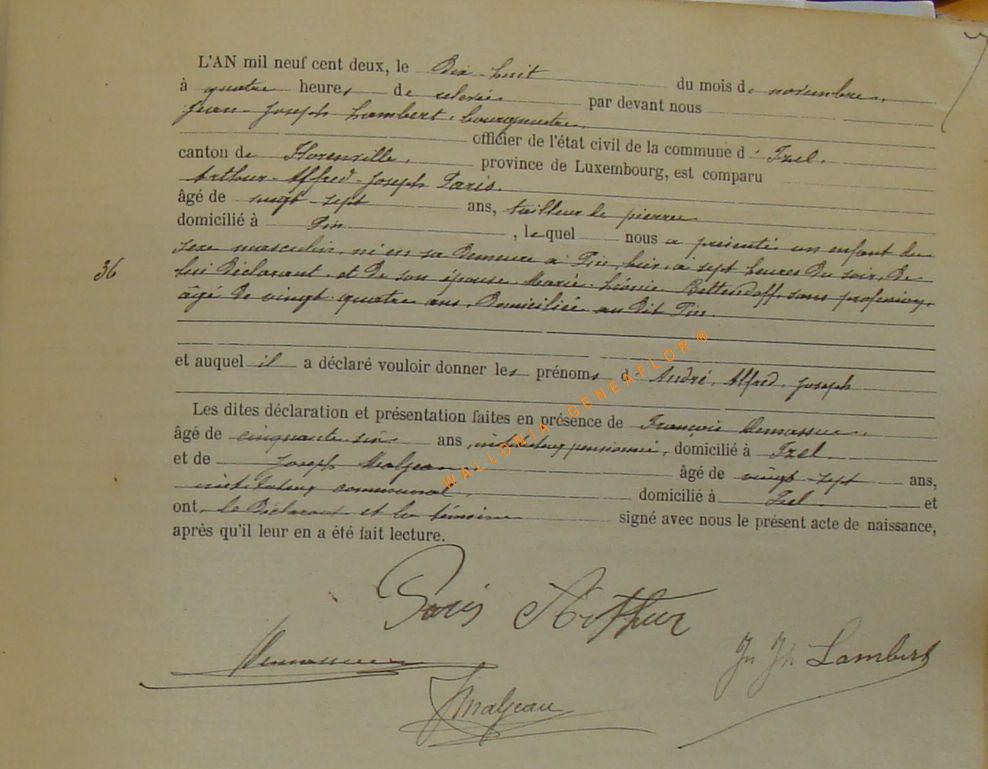 L'AN mil neuf cent deux, le Dix-huit du mois de novembre,
à quatre heures de relevée par devant nous
Jean-Joseph Lambert, bourgmestre,
officier de l'état civil de la commune d'Izel,
canton de Florenville, province de Luxembourg, est comparu
Arthur-Alfred-Joseph Paris,
âgé de vingt-sept ans, tailleur de pierre
domicilié à Pin, lequel nous a présenté un enfant du
36
sexe masculin, né en sa demeure à Pin, hier, à sept heures du soir, de
lui Déclarant, et de son épouse Marie Léonie Bettendorff, sans profession,
âgé de vingt-quatre ans, Domiciliée au dit Pin.
et auquel il a déclaré vouloir donner les prénoms d' André, Alfred, Joseph
Les dites déclaration et présentation faites en présence de François
âgé de cinquante six ans, instituteur pensionné, domicilié à Izel.
et de Joseph Maljean âgé de vingt-sept ans,
instituteur communal, domicilié à Izel et
ont, le Déclarant et les témoins signé avec nous le présent acte de naissance,
après qu'il leur en a été fait lecture.
Paris Arthur
Jn Jh Lambert
JMaljean
WALLONIA-GENEAFLOR ®